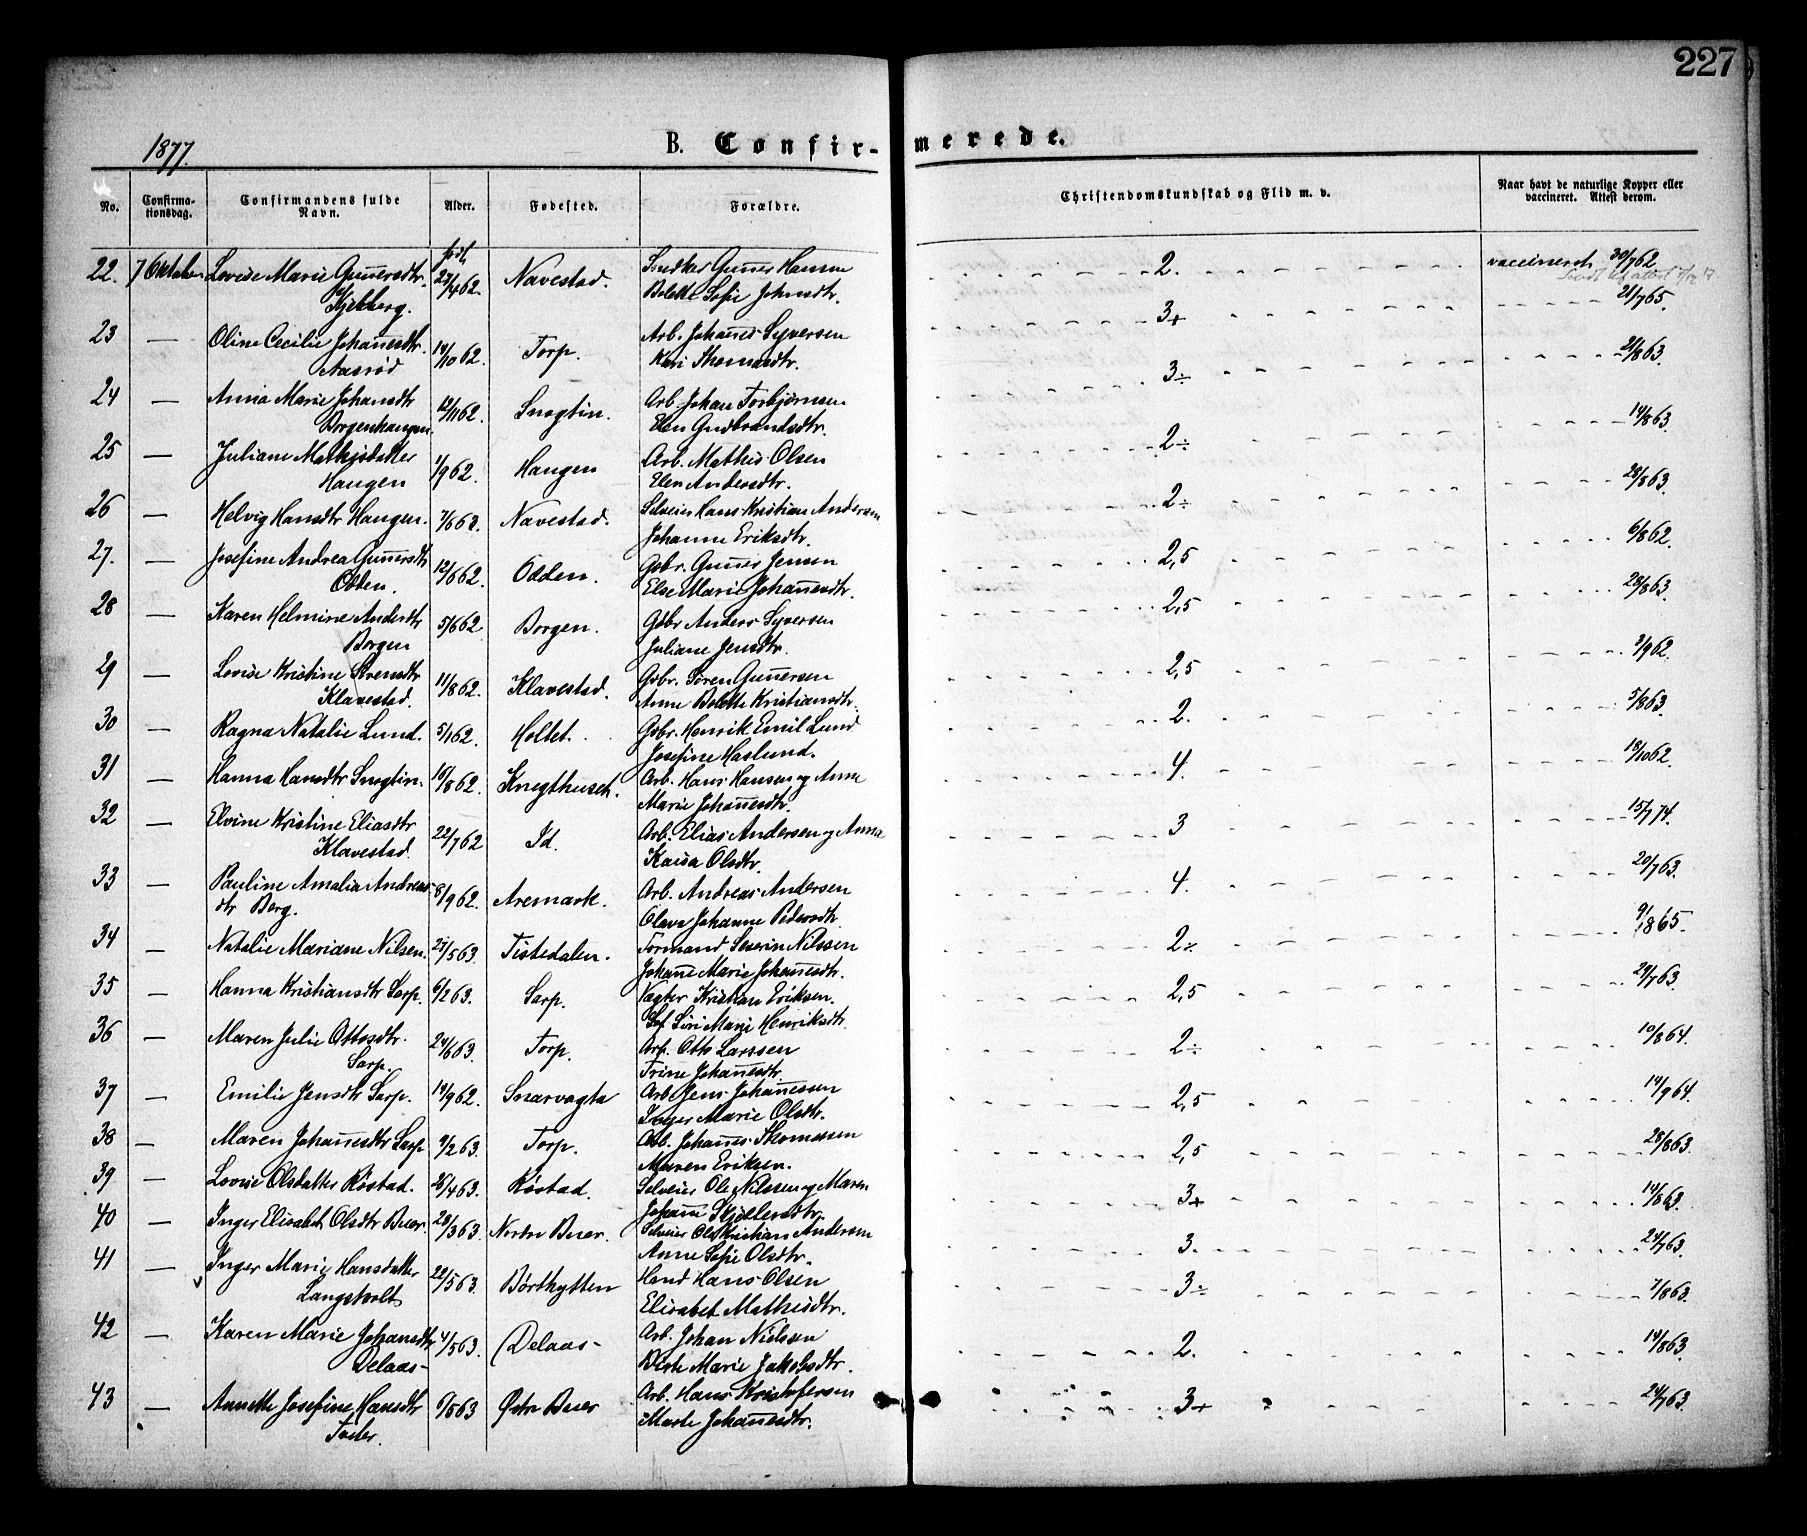 227
1877.
B. Confirmerede.
No. Confirmationsdag. Confirmandens fulde Navn. Alder. Fødested. Forældre. Christendomskundskab og Flid m. v. Naar havt de naturlige Kopper eller vaccineret. Attest derom.
22. 7 Oktober Lovise Marie Gunnersdtr. 27/4 62. Navestad. Snedker Gunner Hansen 2. vaccineret 30/7 62
Kjekberg. Bolette Sofie Johnsdtr.
23 — Oline Cecilie Johannesdtr. 14/10 62. Torp. Arb. Johannes Syversen 3+ 21/7 65.
Aasrød Kari Thomasdtr.
24 — Anna Marie Johansdtr 12/11 62. Snogtin. Arb. Johan Torbjørnsen 3÷ 21/8 63.
Borgenhaugen. Elen Gudbrandsdtr.
25 — Juliane Mathisdatter 1/9 62. Haugen Arb. Mathis Olsen 2÷ 14/8 63.
Haugen Elen Andersdtr.
26 — Helvig Hansdtr Haugen. 7/6 62. Navestad. Selveier Hans Kristian Andersen 2÷ 28/5 63.
Johanne Eriksdtr.
27. — Josefine Andrea Gunnersdtr 12/6 62. Odden. Gbr. Gunner Jensen 2,5 6/8 62.
Odden. Else Marie Johannesdtr.
28 — Karen Helmine Andersdtr 5/6 62 Borgen. Gbr Anders Syversen 2,5 28/8 63.
Borgen Juliane Jensdtr.
29 — Lovise Kristine Sørensdtr 11/8 62. Klavestad. Gbr. Søren Gunnersen 2,5 2/9 62.
Klavestad. Anne Bolette Kristiansdtr.
30 — Ragna Natalie Lund. 5/1 62. Holtet. Gbr. Henrik Emil Lund 2. 5/8 63.
Josefine Haslund.
31 — Hanna Hansdtr Snogtin. 16/8 62. Knegthuset. Arb. Hans Hansen og Anne 4. 18/10 62.
Marie Johannesdtr.
32 — Elvine Kristine Eliasdtr 22/7 62 Id. Arb. Elias Andersen og Anna 3 15/7 74.
Klavestad. Kaisa Olsdtr.
33 — Pauline Amalia Andreas- 8/9 62. Aremark. Arb. Andreas Andersen 4. 20/7 63.
dtr Berg. Olava Johanne Pedersdtr.
34 — Natalie Mariane Nilsen. 27/5 63. Tistedalen. Formand Severin Nilssen 2÷ 9/8 65.
Johanne Marie Johannesdtr.
35 — Hanna Kristiansdtr Sarp. 6/2 63. Sarp. Vagter Kristian Eriksen. 2,5 29/7 63.
Siri Marie Henriksdtr.
36 — Maren Julie Ottosdtr. 24/6 63. Torp. Arb. Otto Larssen 2÷ 10/8 64.
Sarp. Trine Johannesdtr.
37 — Emilie Jensdtr Sarp. 14/9 62. Snarvagta Arb Jens Johannessen 2,5 14/9 64.
Inger Marie Olsdtr.
38 — Maren Johannesdtr Sarp 9/2 63. Torp. Arb. Johannes Thomassen 2,5 28/8 63.
Maren Eriksen.
39 — Lovise Olsdatter Røstad. 28/4 63. Røstad. Selveier Ole Nilssen og Maren 3+ 14/8 63.
Johanne Skjøllersdtr.
40 — Inger Elisabet Olsdtr Buer. 28/3 63. Nordre Buer. Selveier Ole Kristian Andersen 3. 24/7 63.
Anne Sofie Olsdtr.
41 — Inger Marie Hansdatter 22/5 63. Børthytten Hans Olsen 3÷ 7/8 63.
Langsholt Elisabet Mathisdtr.
42 — Karen Marie Johansdtr 4/5 63. Delaas- Arb. Johan Nielssen 2. 14/8 63.
Delaas- Birte Marie Jakobsdtr.
43 — Annette Josefine Hansdtr 6/5 63 Østre Buer Arb. Hans Kristofersen 3+ 24/7 63.
Marte Johannesdtr.